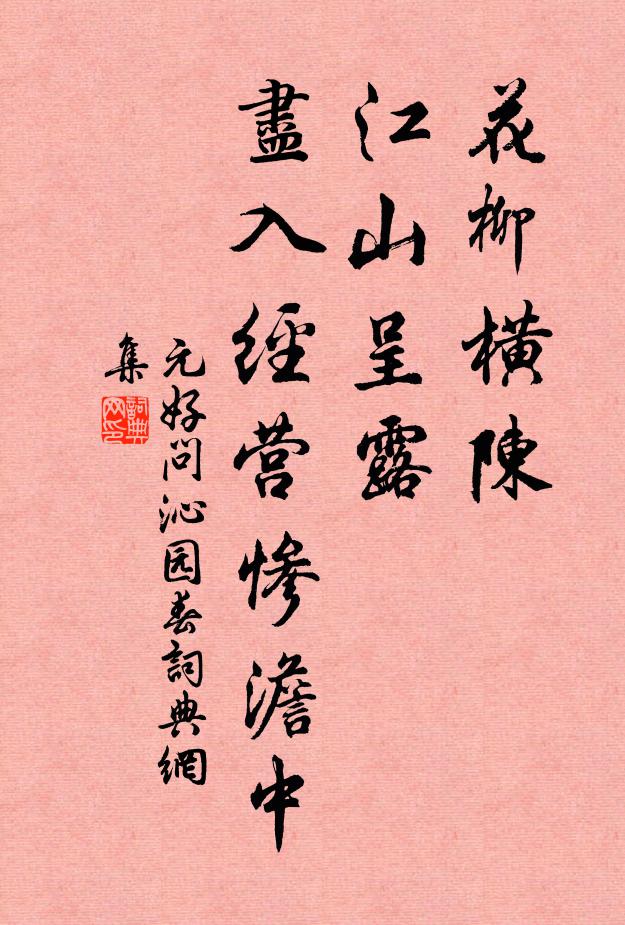 花柳橫陳
江山呈露
盡入經营慘澹中
元好问沁园春詞典網
集
詞典网印